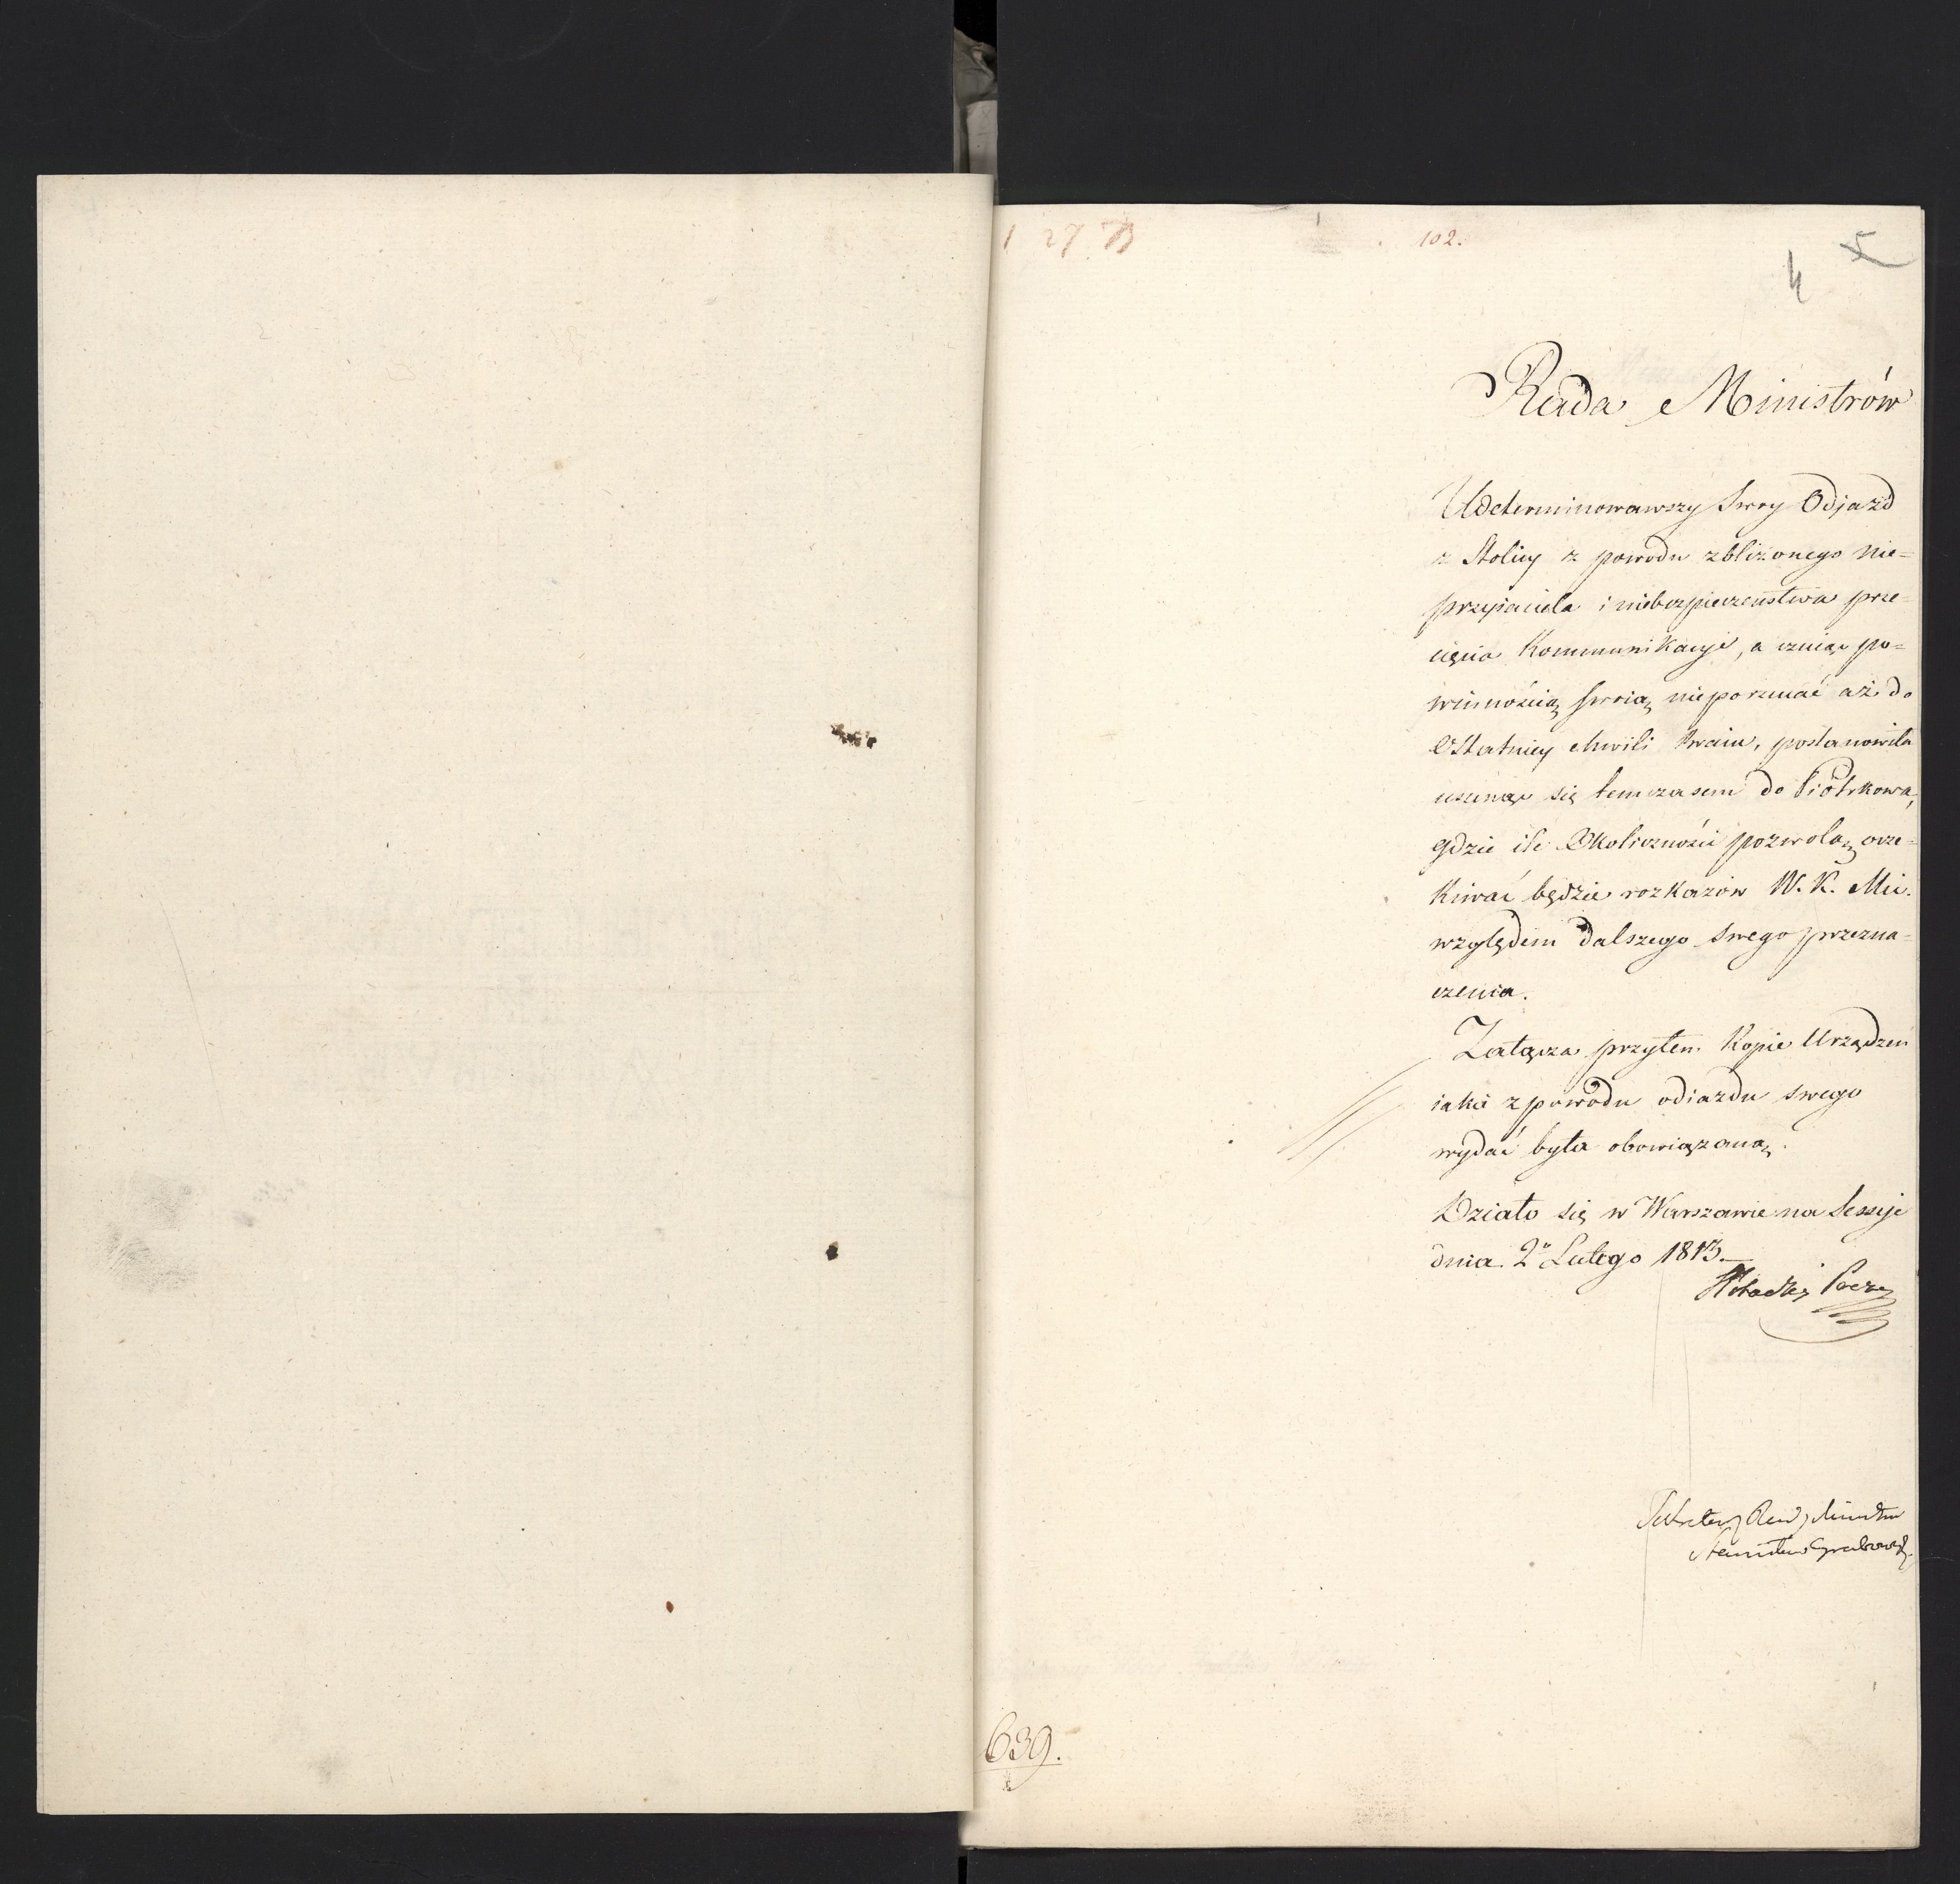 1 27 B
102.
5
4
Rada Ministrów
Udeterminowawszy Swoy Odjazd
z Stolicy z powodu zbliżonego nie=
przyiaciela i niebezpieczenstwa prze=
cięcia Kommunikacyi, a czuiąc po=
winnością swoią nieporzucać aż do
Ostatniey chwili kraiu, postanowiła
usunąć się temczasem do Piotrkowa,
gdzie ile Okoliczności pozwolą ocze=
kiwać będzie rozkazów W. K. Mci.
względem dalszego swego przezna=
czenia.
Załącza przytem Kopie Urządzeń
iakie z powodu odiazdu swego
wydać była obowiązaną.
Działo się w Warszawie na Sessyi
dnia 2º Lutego 1813.
Sekretarz Rady Ministrów
Stanisław Grabowski
639.